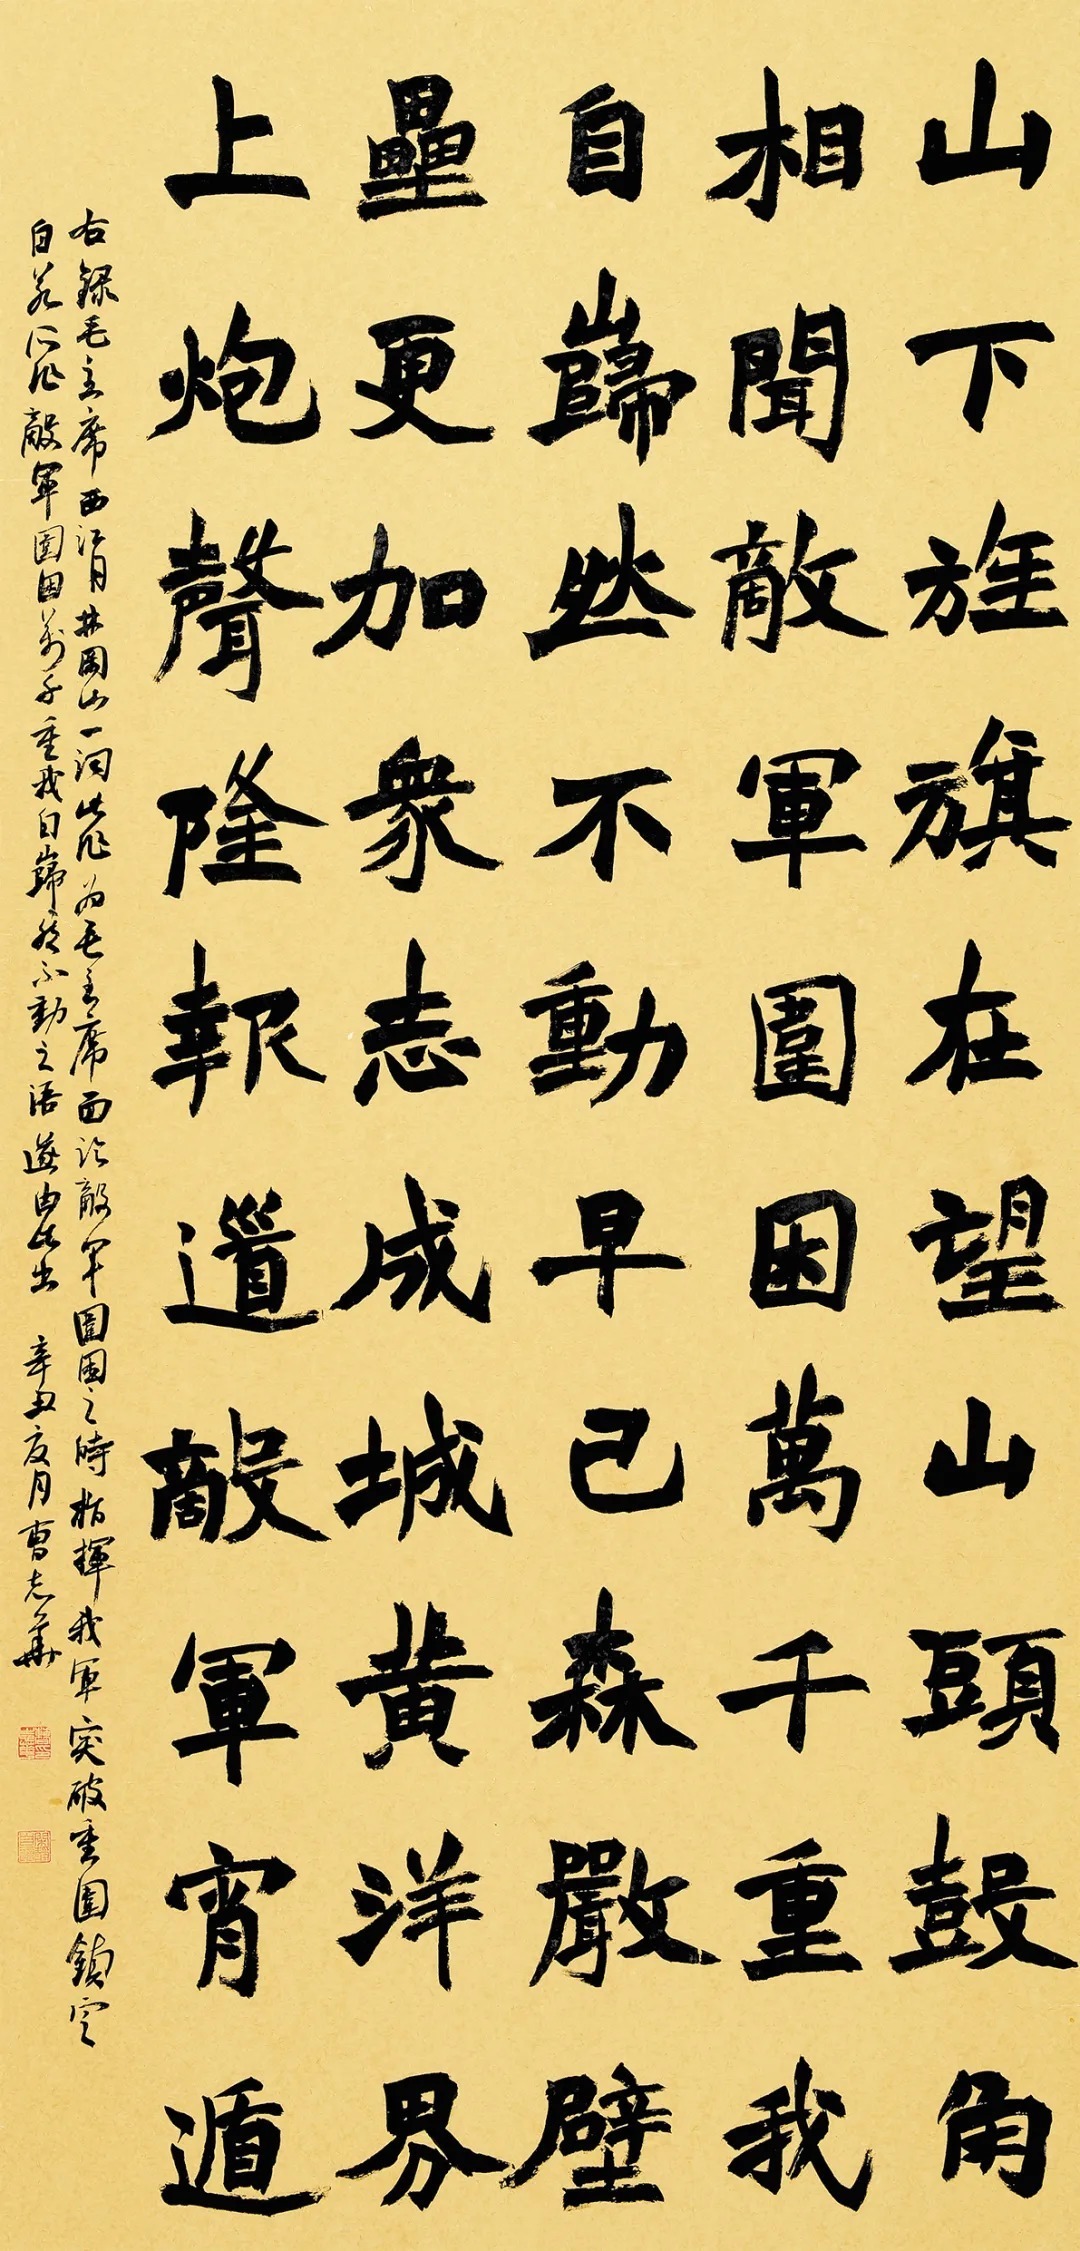 山下旌旗在望山頭鼓角
相聞敵軍圍困萬千重我
自巋然不動早已森嚴壁
壘更加衆志成城黄洋界
上炮聲隆報道敵軍宵遁
右録毛主席西江月井岡山一詞此作为毛主席面臨敵軍圍困之時指揮我軍突破重圍鎮定
自若所作敵軍圍困萬千重我自巋然不動之語蓋由此出 辛丑夏月曹志華